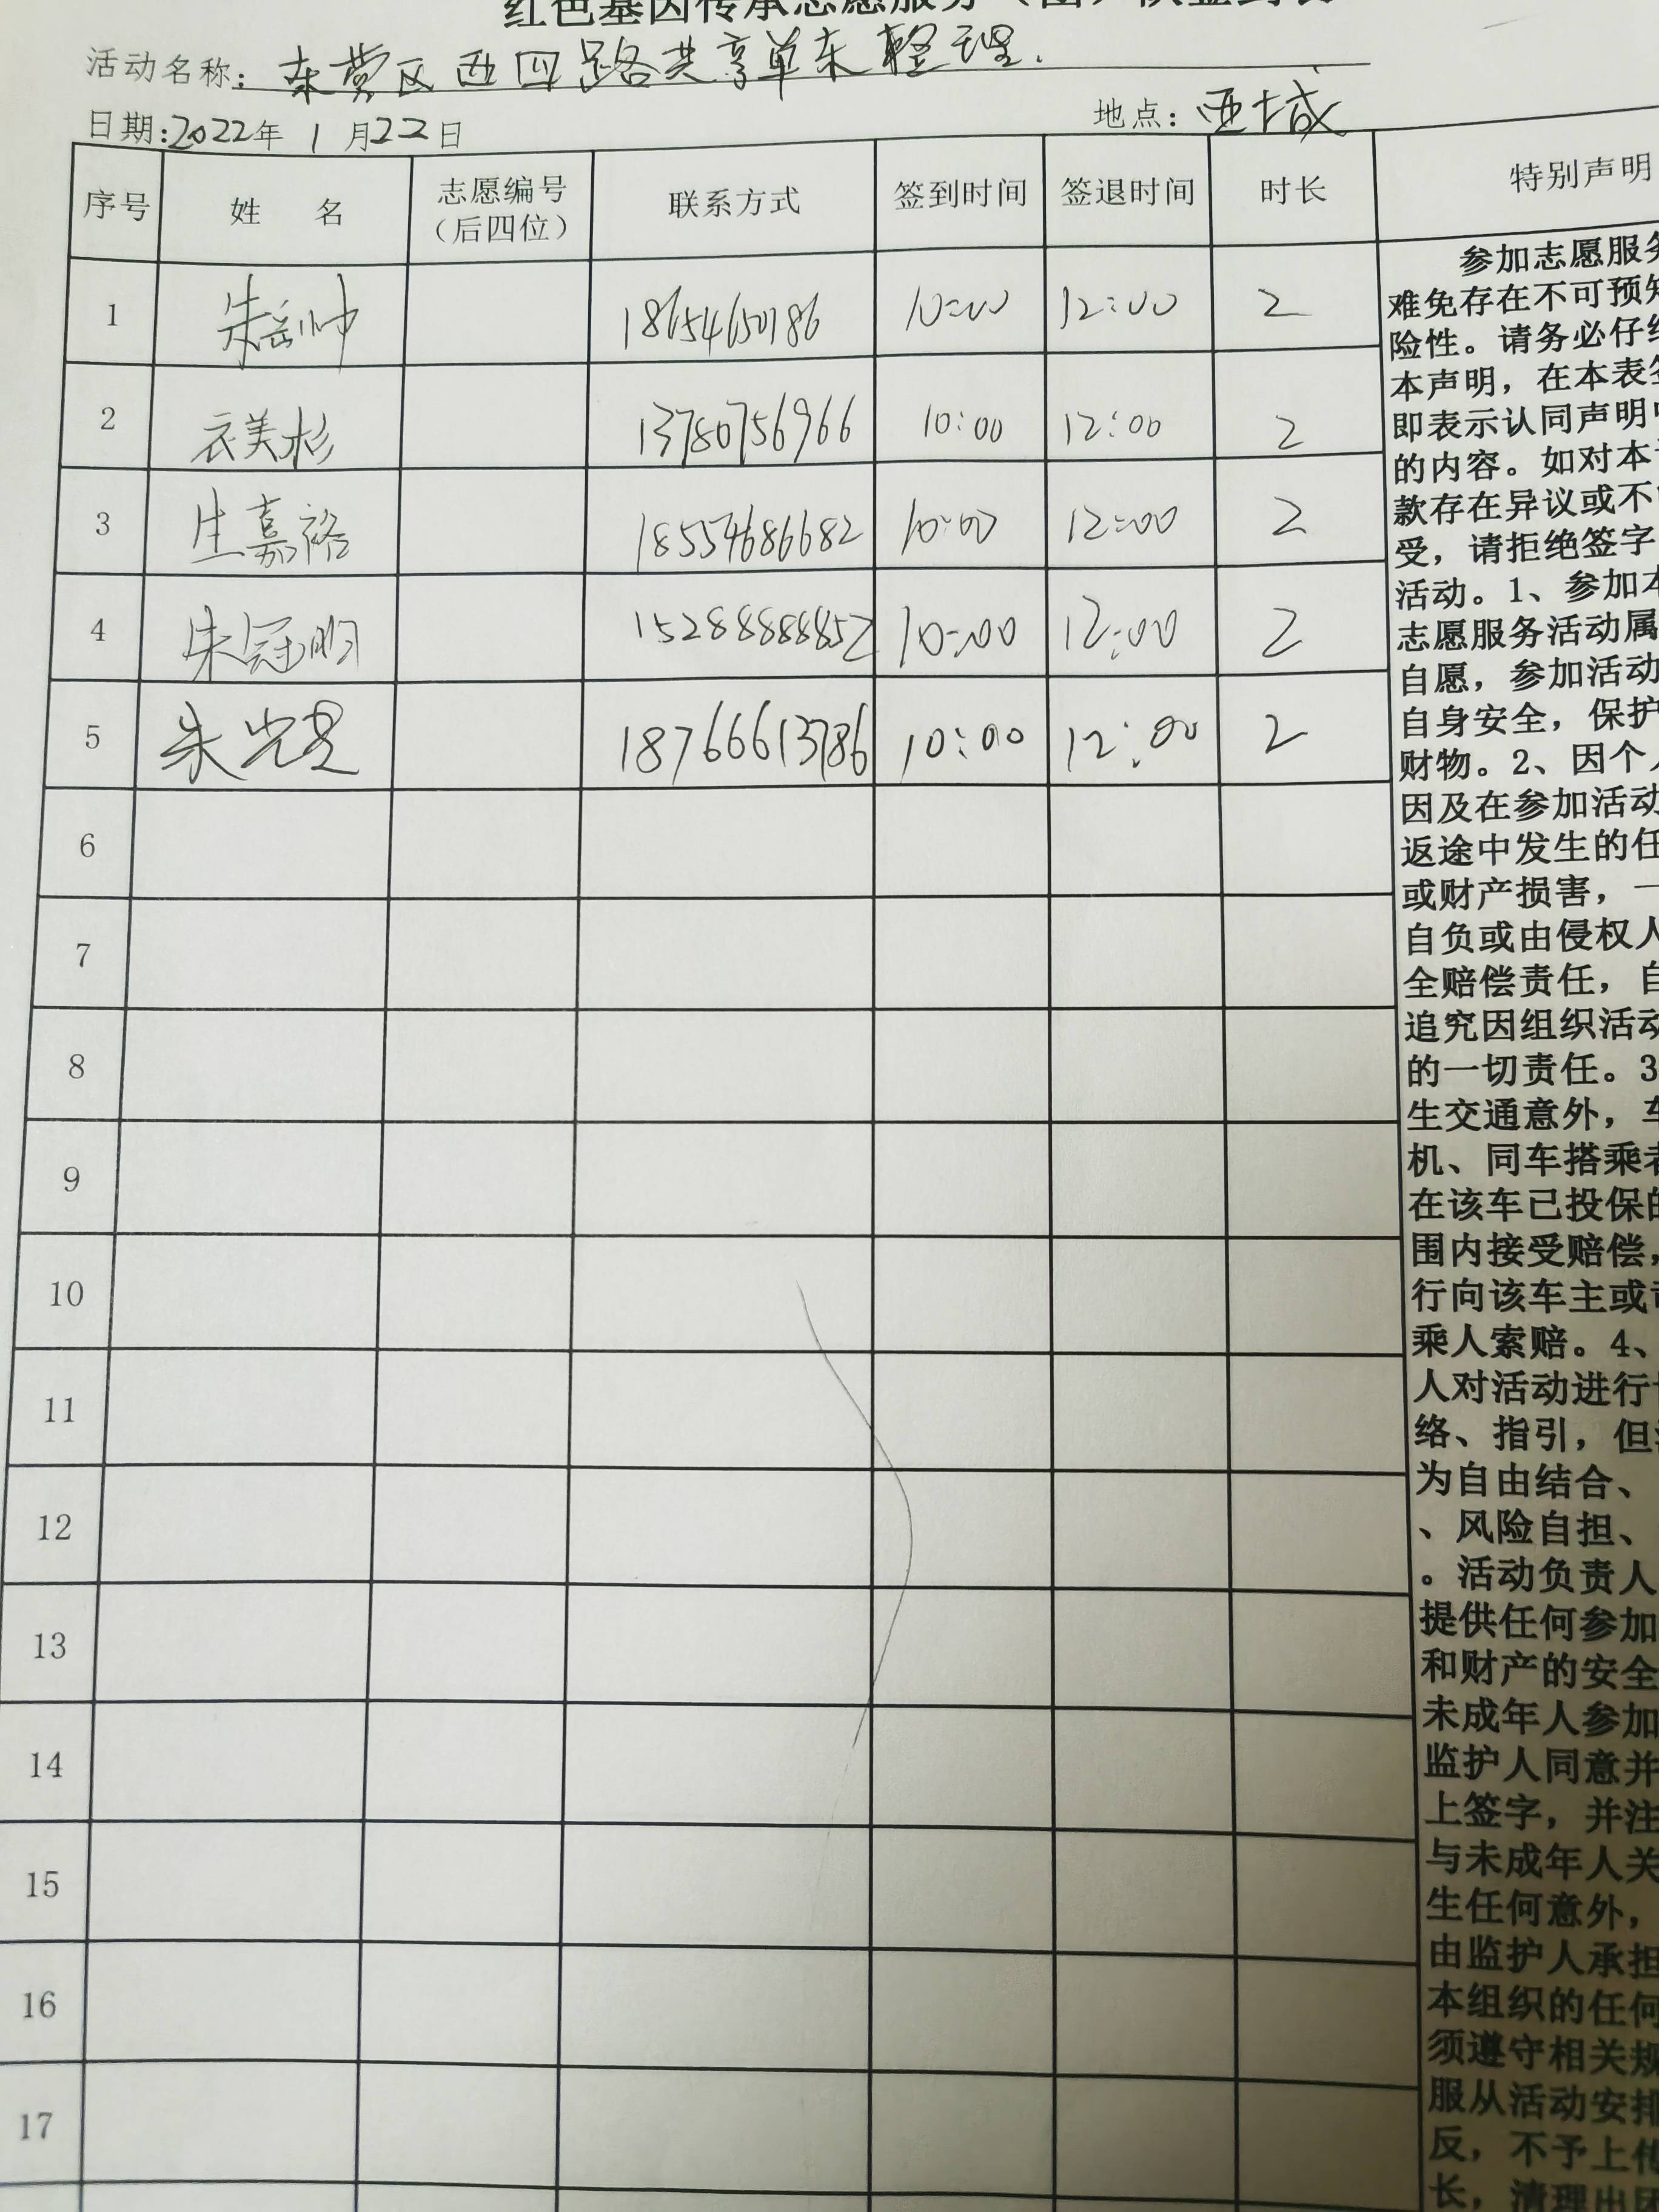 红色基因传承志愿服务（团）队签到表
活动名称：东营区西四路共享单车整理.
日期:2022年 1 月22日 地点：西城
序号 姓 名 志愿编号（后四位） 联系方式 签到时间 签退时间 时长 特别声明
1 朱岳帅 18654650186 10:00 12:00 2
2 衣美杉 13780756966 10:00 12:00 2
3 生嘉裕 18554686682 10:00 12:00 2
4 朱冠明 15288888852 10:00 12:00 2
5 朱光 18766613786 10:00 12:00 2
6
7
8
9
10
11
12
13
14
15
16
17
参加志愿服务
难免存在不可预知
险性。请务必仔细
本声明，在本表签
即表示认同声明中
的内容。如对本
款存在异议或不
受，请拒绝签字
活动。1、参加本
志愿服务活动属
自愿，参加活动
自身安全，保护
财物。2、因个人
因及在参加活动
返途中发生的任
或财产损害，一
自负或由侵权人
全赔偿责任，自
追究因组织活动
的一切责任。3
生交通意外，车
机、同车搭乘者
在该车已投保的
围内接受赔偿，
行向该车主或司
乘人索赔。4、
人对活动进行
络、指引，但
为自由结合、
、风险自担、
。活动负责人
提供任何参加
和财产的安全
未成年人参加
监护人同意并
上签字，并注
与未成年人关
生任何意外，
由监护人承担
本组织的任何
须遵守相关规
服从活动安排
反，不予上传
长，清理出团